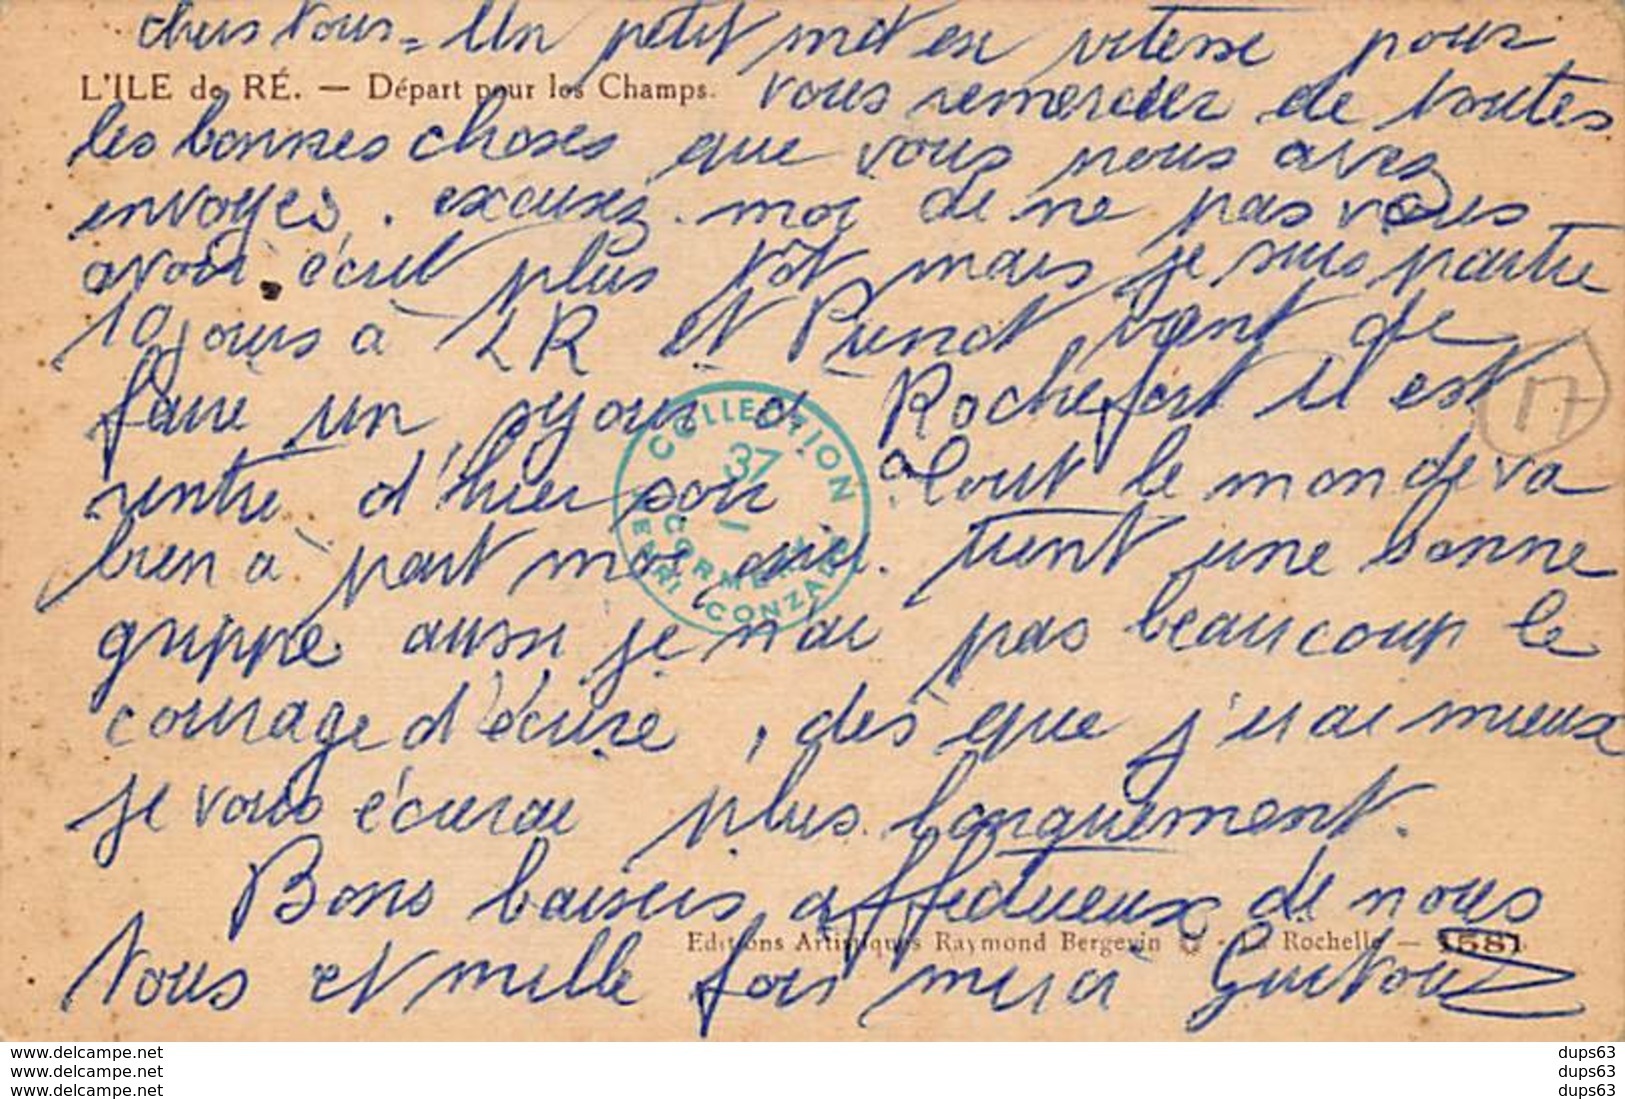 chers tous = Un petit mot en vitesse pour
L'ILE de RÉ. — Départ pour les Champs.
vous remercier de toutes
les bonnes choses que vous nous avez
envoyés. excusez moi de ne pas vous
avoir écrit plus tôt mais je suis partie
10 jours à LR et vient de
faire un séjour à Rochefort il est
17
rentré d'hier soir. Tout le monde va
bien à part moi qui tient une bonne
grippe aussi je n'ai pas beaucoup le
courage d'écrire, dès que j'irai mieux
je vous écrirai plus longuement.
Bons baisers affectueux de nous
Editions Artistiques Raymond Bergevin - La Rochelle — 1581
tous et mille fois merci Guitou
COLLECTION
37
CORMERY
HENRI GONZALE
www.delcampe.net dups63
www.delcampe.net dups63
www.delcampe.net dups63